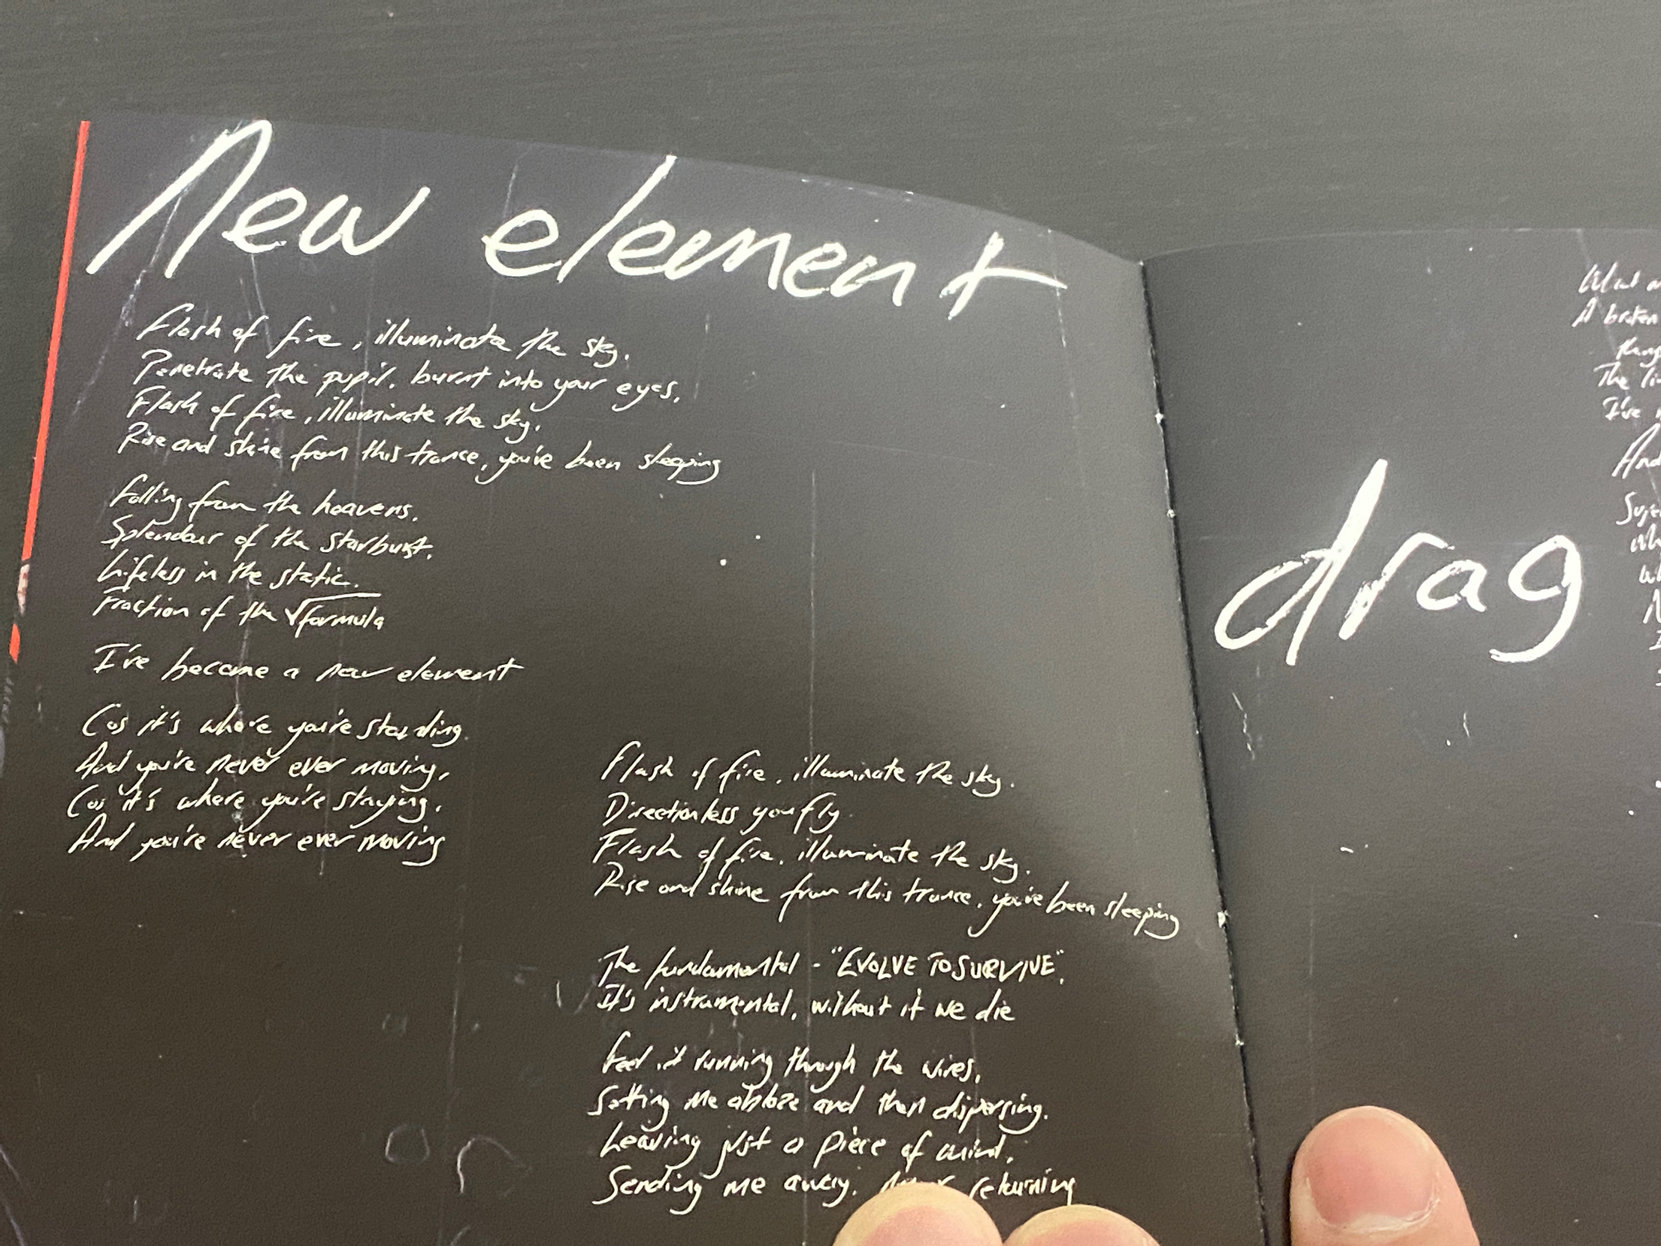 New element
Flash of fire, illuminate the sky.
Penetrate the pupil, burnt into your eyes.
Flash of fire, illuminate the sky.
Rise and shine from this trance, you've been sleeping
Falling from the heavens.
Splendour of the starburst.
Lifeless in the static.
Fraction of the √formula
I've become a new element
Cos it's where you're standing.
And you're never ever moving,
Cos it's where you're staying.
And you're never ever moving
Flash of fire, illuminate the sky.
Directionless you fly.
Flash of fire, illuminate the sky.
Rise and shine from this trance, you've been sleeping
The fundamental - "EVOLVE TO SURVIVE",
It's instrumental, without it we die
Feel it running through the wires,
Setting me ablaze and then dispersing.
Leaving just a piece of mind,
Sending me away, returning
drag
A broken
The
I've
And